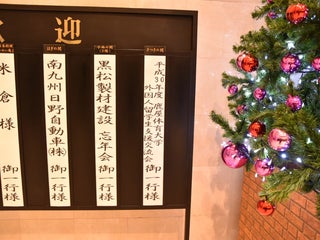 迎
さつきの間
平成30年度 鹿屋体育大学
外国人留学生支援交流会
御一行様
黒松製材建設 忘年会
御一行様
はぎの間
南九州日野自動車㈱
御一行様
米倉様